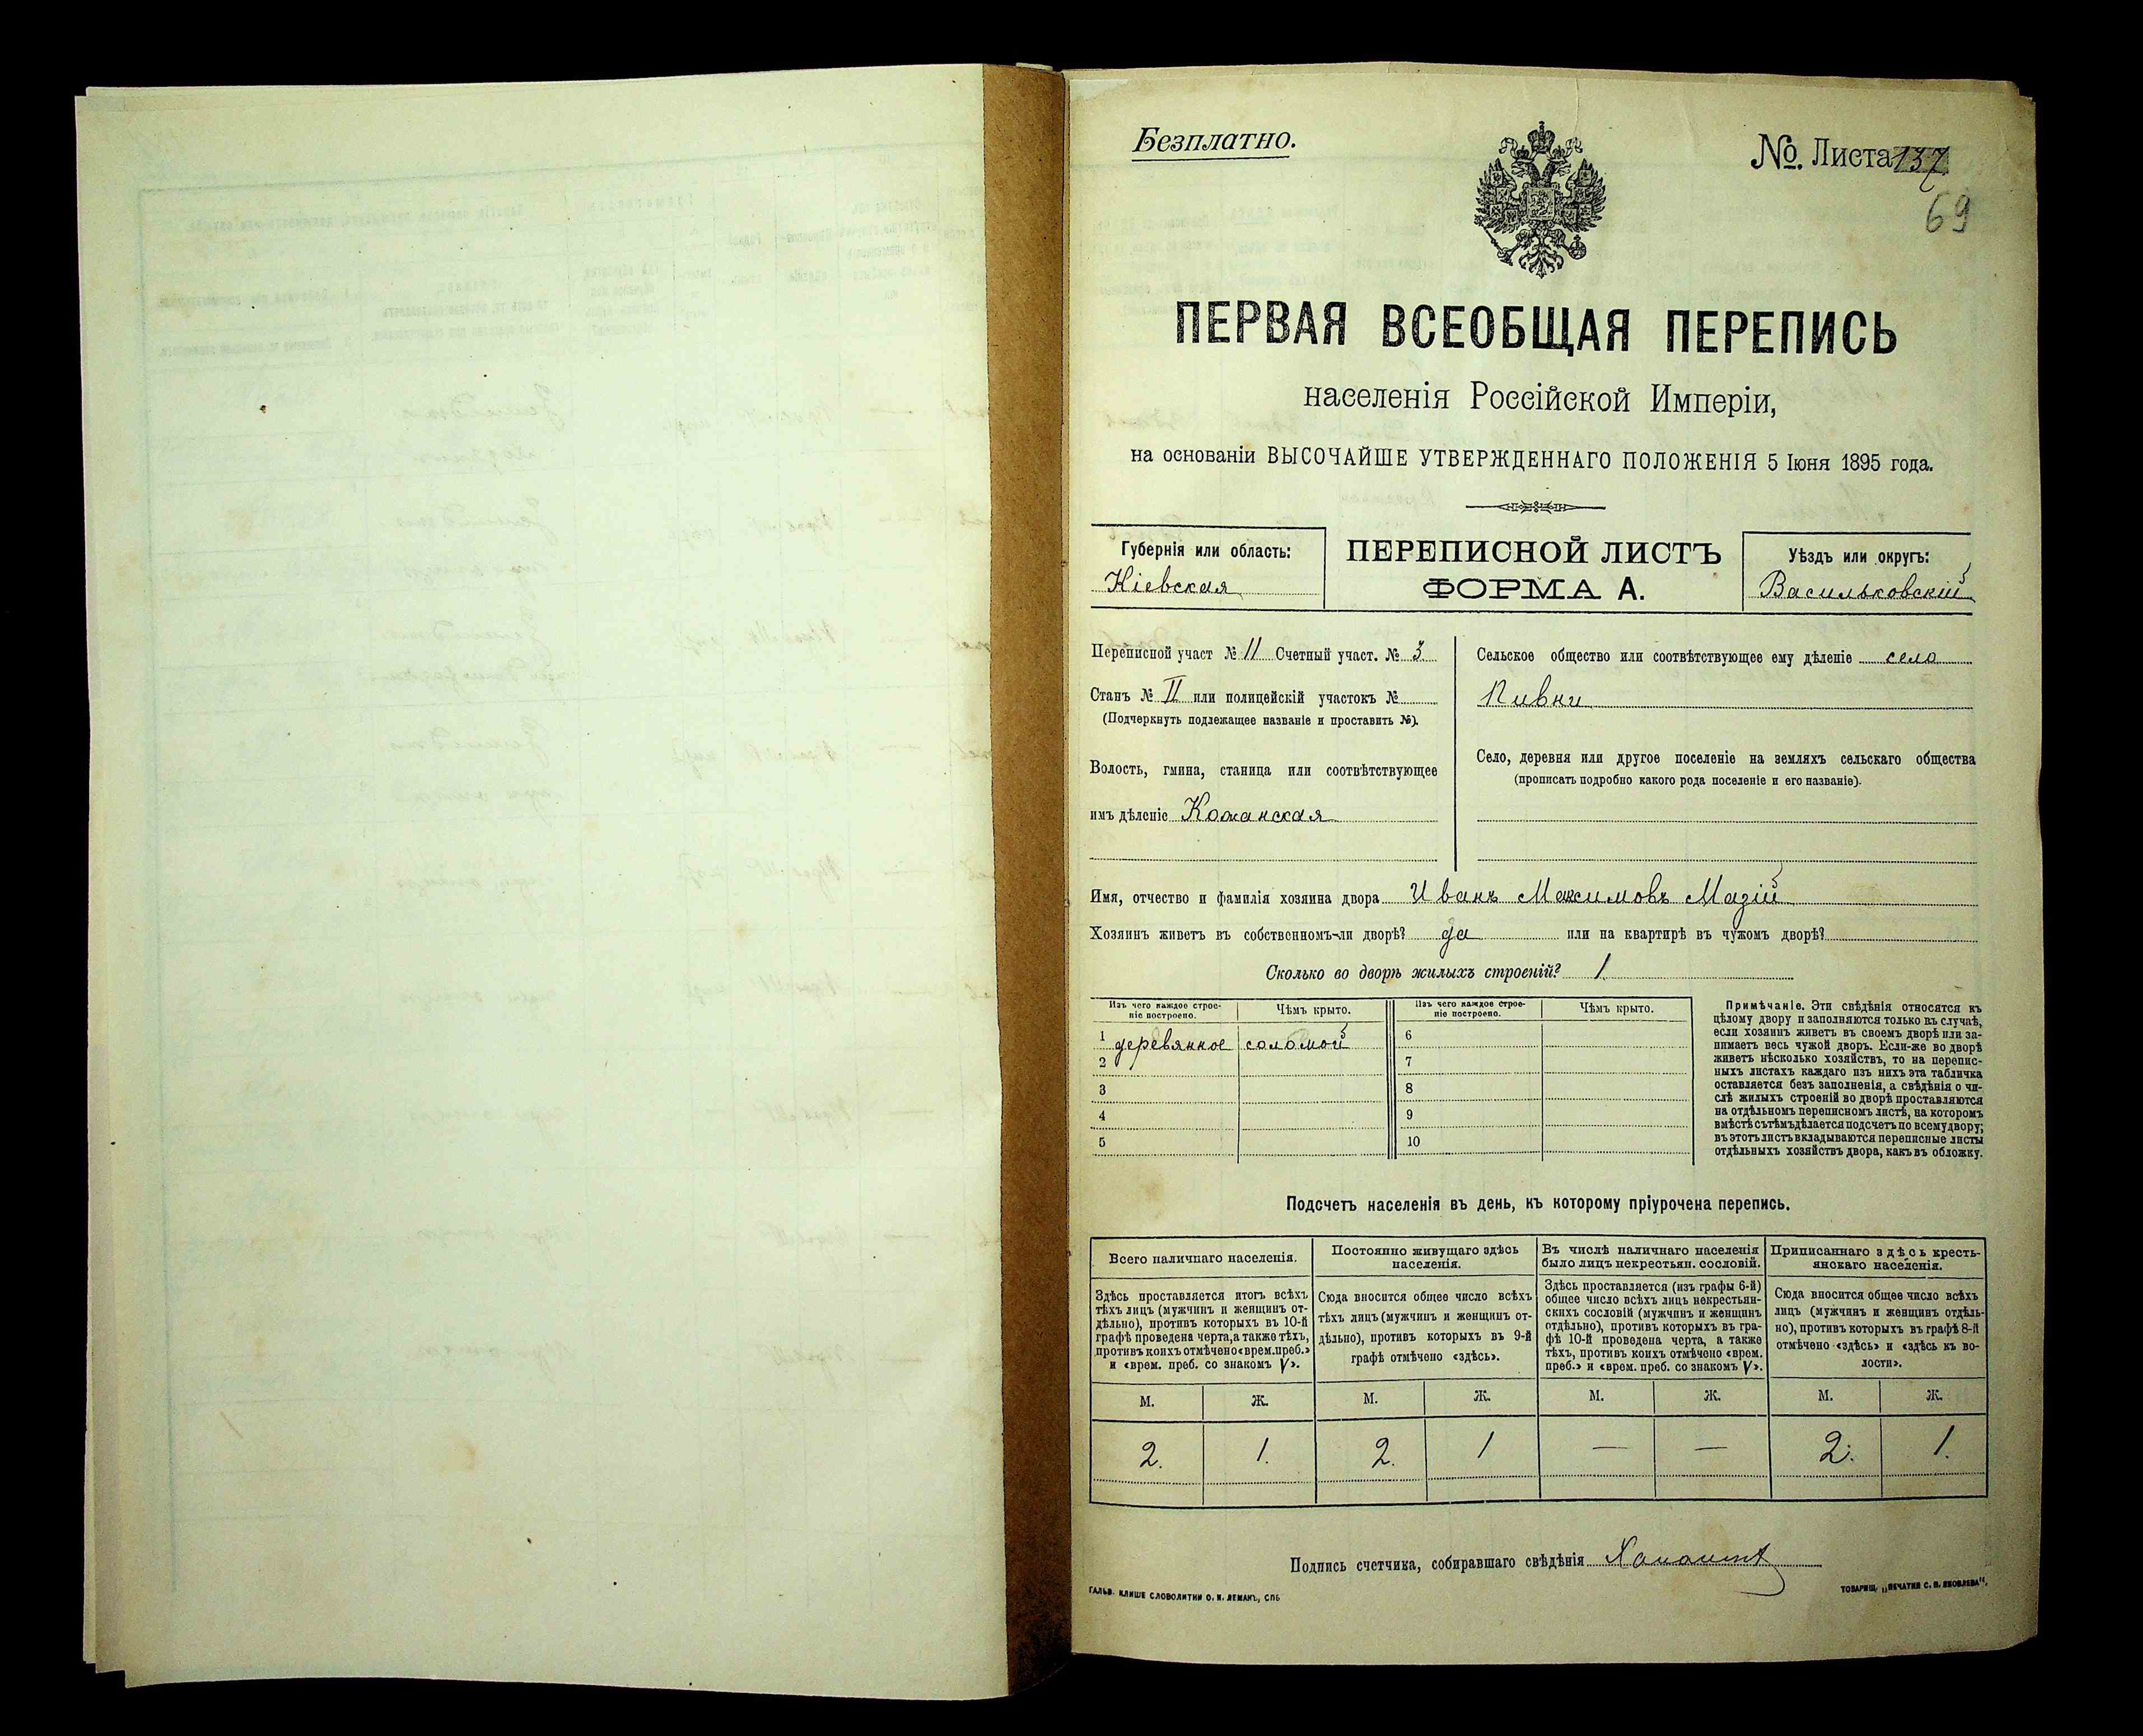 Безплатно.
№. Листа 137
69
ПЕРВАЯ ВСЕОБЩАЯ ПЕРЕПИСЬ
населенія Россійской Имперіи,
на основаніи ВЫСОЧАЙШЕ УТВЕРЖДЕННАГО ПОЛОЖЕНІЯ 5 Іюня 1895 года.
Губернія или область:
Кіевская
ПЕРЕПИСНОЙ ЛИСТЪ
ФОРМА А.
Уѣздъ или округъ:
Васильковскій
Переписной участ № 11 Счетный участ. № 3
Станъ № II или полицейскій участокъ №
(Подчеркнуть подлежащее названіе и проставить №).
Волость, гмина, станица или соотвѣтствующее
имъ дѣленіе Кожанская
Сельское общество или соотвѣтствующее ему дѣленіе село
Пивни
Село, деревня или другое поселеніе на земляхъ сельскаго общества
(прописать подробно какого рода поселеніе и его названіе).
Имя, отчество и фамилія хозяина двора Иванъ Максимовъ Мазій
Хозяинъ живетъ въ собственномъ-ли дворѣ? да или на квартирѣ въ чужомъ дворѣ?
Сколько во дворѣ жилыхъ строеній? 1.
Изъ чего каждое строе-
ніе построено.
Чѣмъ крыто.
Изъ чего каждое строе-
ніе построено.
Чѣмъ крыто.
1 деревянное соломой 6
2 7
3 8
4 9
5 10
Примѣчаніе. Эти свѣдѣнія относятся къ
цѣлому двору и заполняются только въ случаѣ,
если хозяинъ живетъ въ своемъ дворѣ или за-
нимаетъ весь чужой дворъ. Если-же во дворѣ
живетъ нѣсколько хозяйствъ, то на перепис-
ныхъ листахъ каждаго изъ нихъ эта табличка
оставляется безъ заполненія, а свѣдѣнія о чи-
слѣ жилыхъ строеній во дворѣ проставляются
на отдѣльномъ переписномъ листѣ, на которомъ
вмѣстѣ съ тѣмъ дѣлается подсчетъ по всему двору;
въ этотъ листъ вкладываются переписные листы
отдѣльныхъ хозяйствъ двора, какъ въ обложку.
Подсчетъ населенія въ день, къ которому пріурочена перепись.
Всего наличнаго населенія.
Постоянно живущаго здѣсь
населенія.
Въ числѣ наличнаго населенія
было лицъ некрестьян. сословій.
Приписаннаго здѣсь кресть-
янскаго населенія.
Здѣсь проставляется итогъ всѣхъ
тѣхъ лицъ (мужчинъ и женщинъ от-
дѣльно), противъ которыхъ въ 10-й
графѣ проведена черта, а также тѣхъ,
противъ коихъ отмѣчено «врем. преб.»
и «врем. преб. со знакомъ V».
Сюда вносится общее число всѣхъ
тѣхъ лицъ (мужчинъ и женщинъ от-
дѣльно), противъ которыхъ въ 9-й
графѣ отмѣчено «здѣсь».
Здѣсь проставляется (изъ графы 6-й)
общее число всѣхъ лицъ некрестьян-
скихъ сословій (мужчинъ и женщинъ
отдѣльно), противъ которыхъ въ гра-
фѣ 10-й проведена черта, а также
тѣхъ, противъ коихъ отмѣчено «врем.
преб.» и «врем. преб. со знакомъ V».
Сюда вносится общее число всѣхъ
лицъ (мужчинъ и женщинъ отдѣль-
но), противъ которыхъ въ графѣ 8-й
отмѣчено «здѣсь» и «здѣсь къ во-
лости».
М. Ж. М. Ж. М. Ж. М. Ж.
2. 1. 2. 1 — — 2. 1.
Подпись счетчика, собиравшаго свѣдѣнія
ГАЛЬВ. КЛИШЕ СЛОВОЛИТНИ О. И. ЛЕМАНЪ, СПБ
ТОВАРИЩ. „ПЕЧАТНЯ С. П. ЯКОВЛЕВА“.